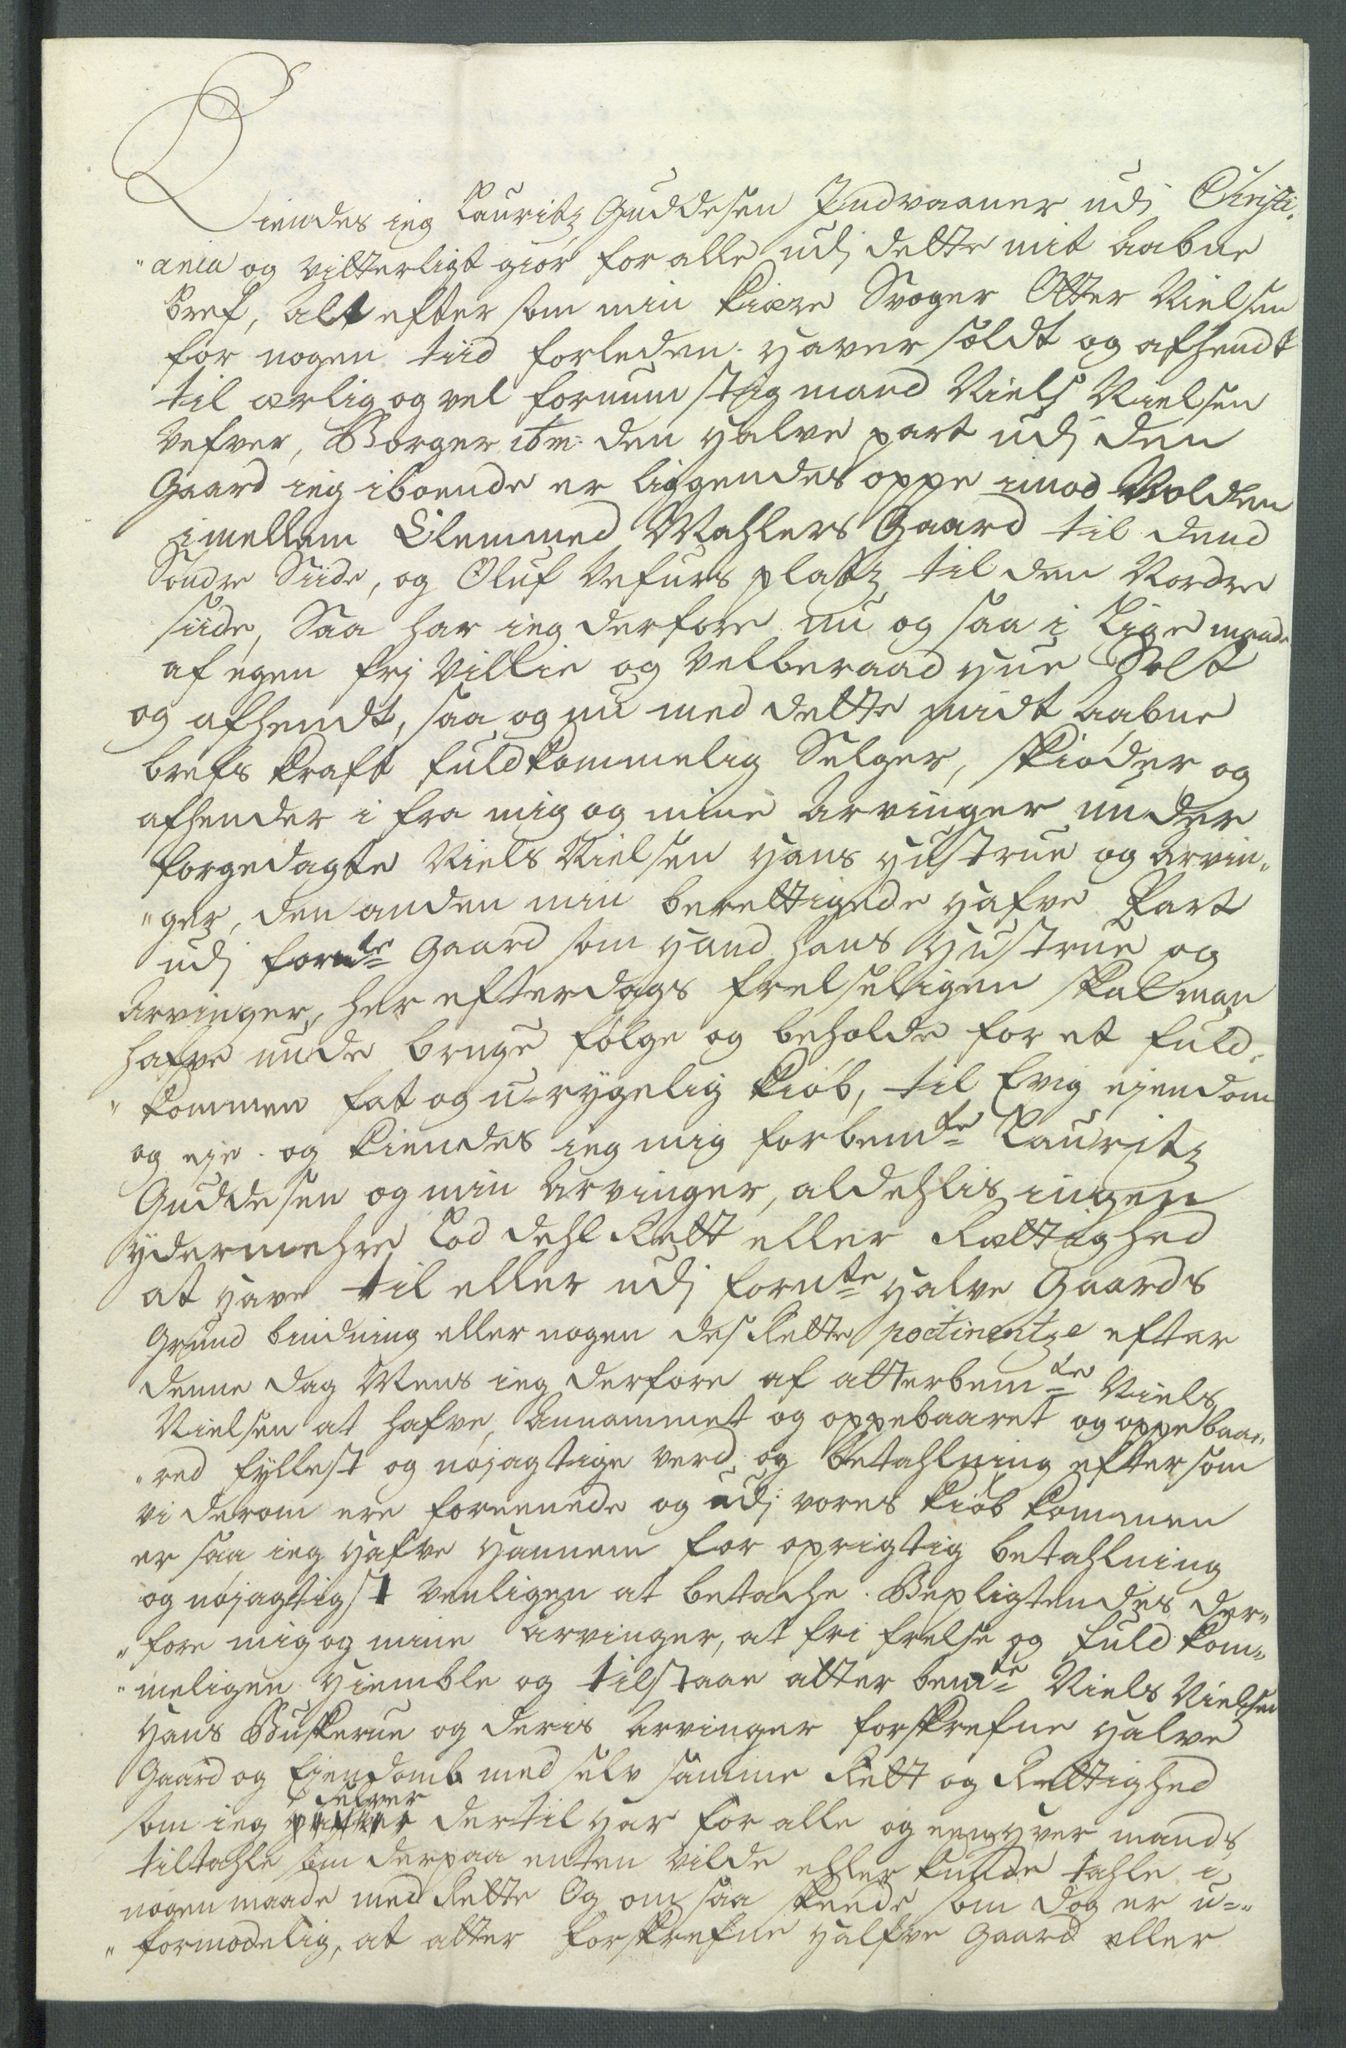 Kiendes ieg Lauritz Guddesen Indvaaner udj Christi-
"ania og vitterligt giör for alle udj dette mit Aabne
Bref, Alt efter som min Kiære Svoger Otter Nielsen
for nogen tiid forleden haver soldt og afhendt
til ærlig og vel fornumstig mand Niels Nielsen
Vefver, Borger ibm: den halve part udj den
Gaard ieg iboende er liggendes oppe imod Volden
imellem Clemmed Mahlers Gaard til dend
Söndre Siide, og Oluf Vefurs platz til den Nordre
siide, Saa har ieg derfore nu og saa i Lige maade
af egen frj Villie og Velberaad hue Solt
og afhendt, saa og nu med dette midt Aabne
brefs Kraft fuldkommelig Selger, skiöder og
afhender i fra mig og mine Arvinger under
forgedagte Niels Nielsen hans hustrue og Arvin-
"ger, den anden min berettigede hafve Part
udj fornte Gaard som hand hans hustrue og
Arvinger, her efterdags frelseligen skal maa
hafve nyde bruge fölge og beholde for et fuld-
"kommen fat og u-rygelig Kiöb, til Evig ejendom
og eje. og Kiendes ieg mig forbemte Lauritz
Guddesen og min Arvinger, aldehlis ingen
ydermehre Lod dehl Rett eller Rettighed
at have til eller udj fornte halve Gaards
Grund bindning eller nogen des Rette pertinentze efter
denne dag Mens ieg derfore af atterbemte Niels
Nielsen at hafve, Annammet og oppebaaret og oppebaa-
"red fyllest og nöjagtige verd og Betahlning eftersom
vi derom ere foreenede og udj vores Kiöb kommen
er saa ieg hafve hannem for oprigtig betahlning
og nöjagtigst venligen at betache. Bepligtendes der-
"fore mig og mine Arvinger, at fri frelse og fuldkom-
"meligen hiemble og tilstaae atter bemte Niels Nielsen
hans Huskerue og deris Arvinger forskrefne halve
Gaard og Eiendomb med selv samme Rett og Rettighed
som ieg selver dertil har for alle og een hver mands
tiltahle som derpaa enten vilde eller kunde tahle i
nogen maade med Rette Og om saa skeede som dog er u-
"formodelig, at atter forskrefne halfve Gaard eller